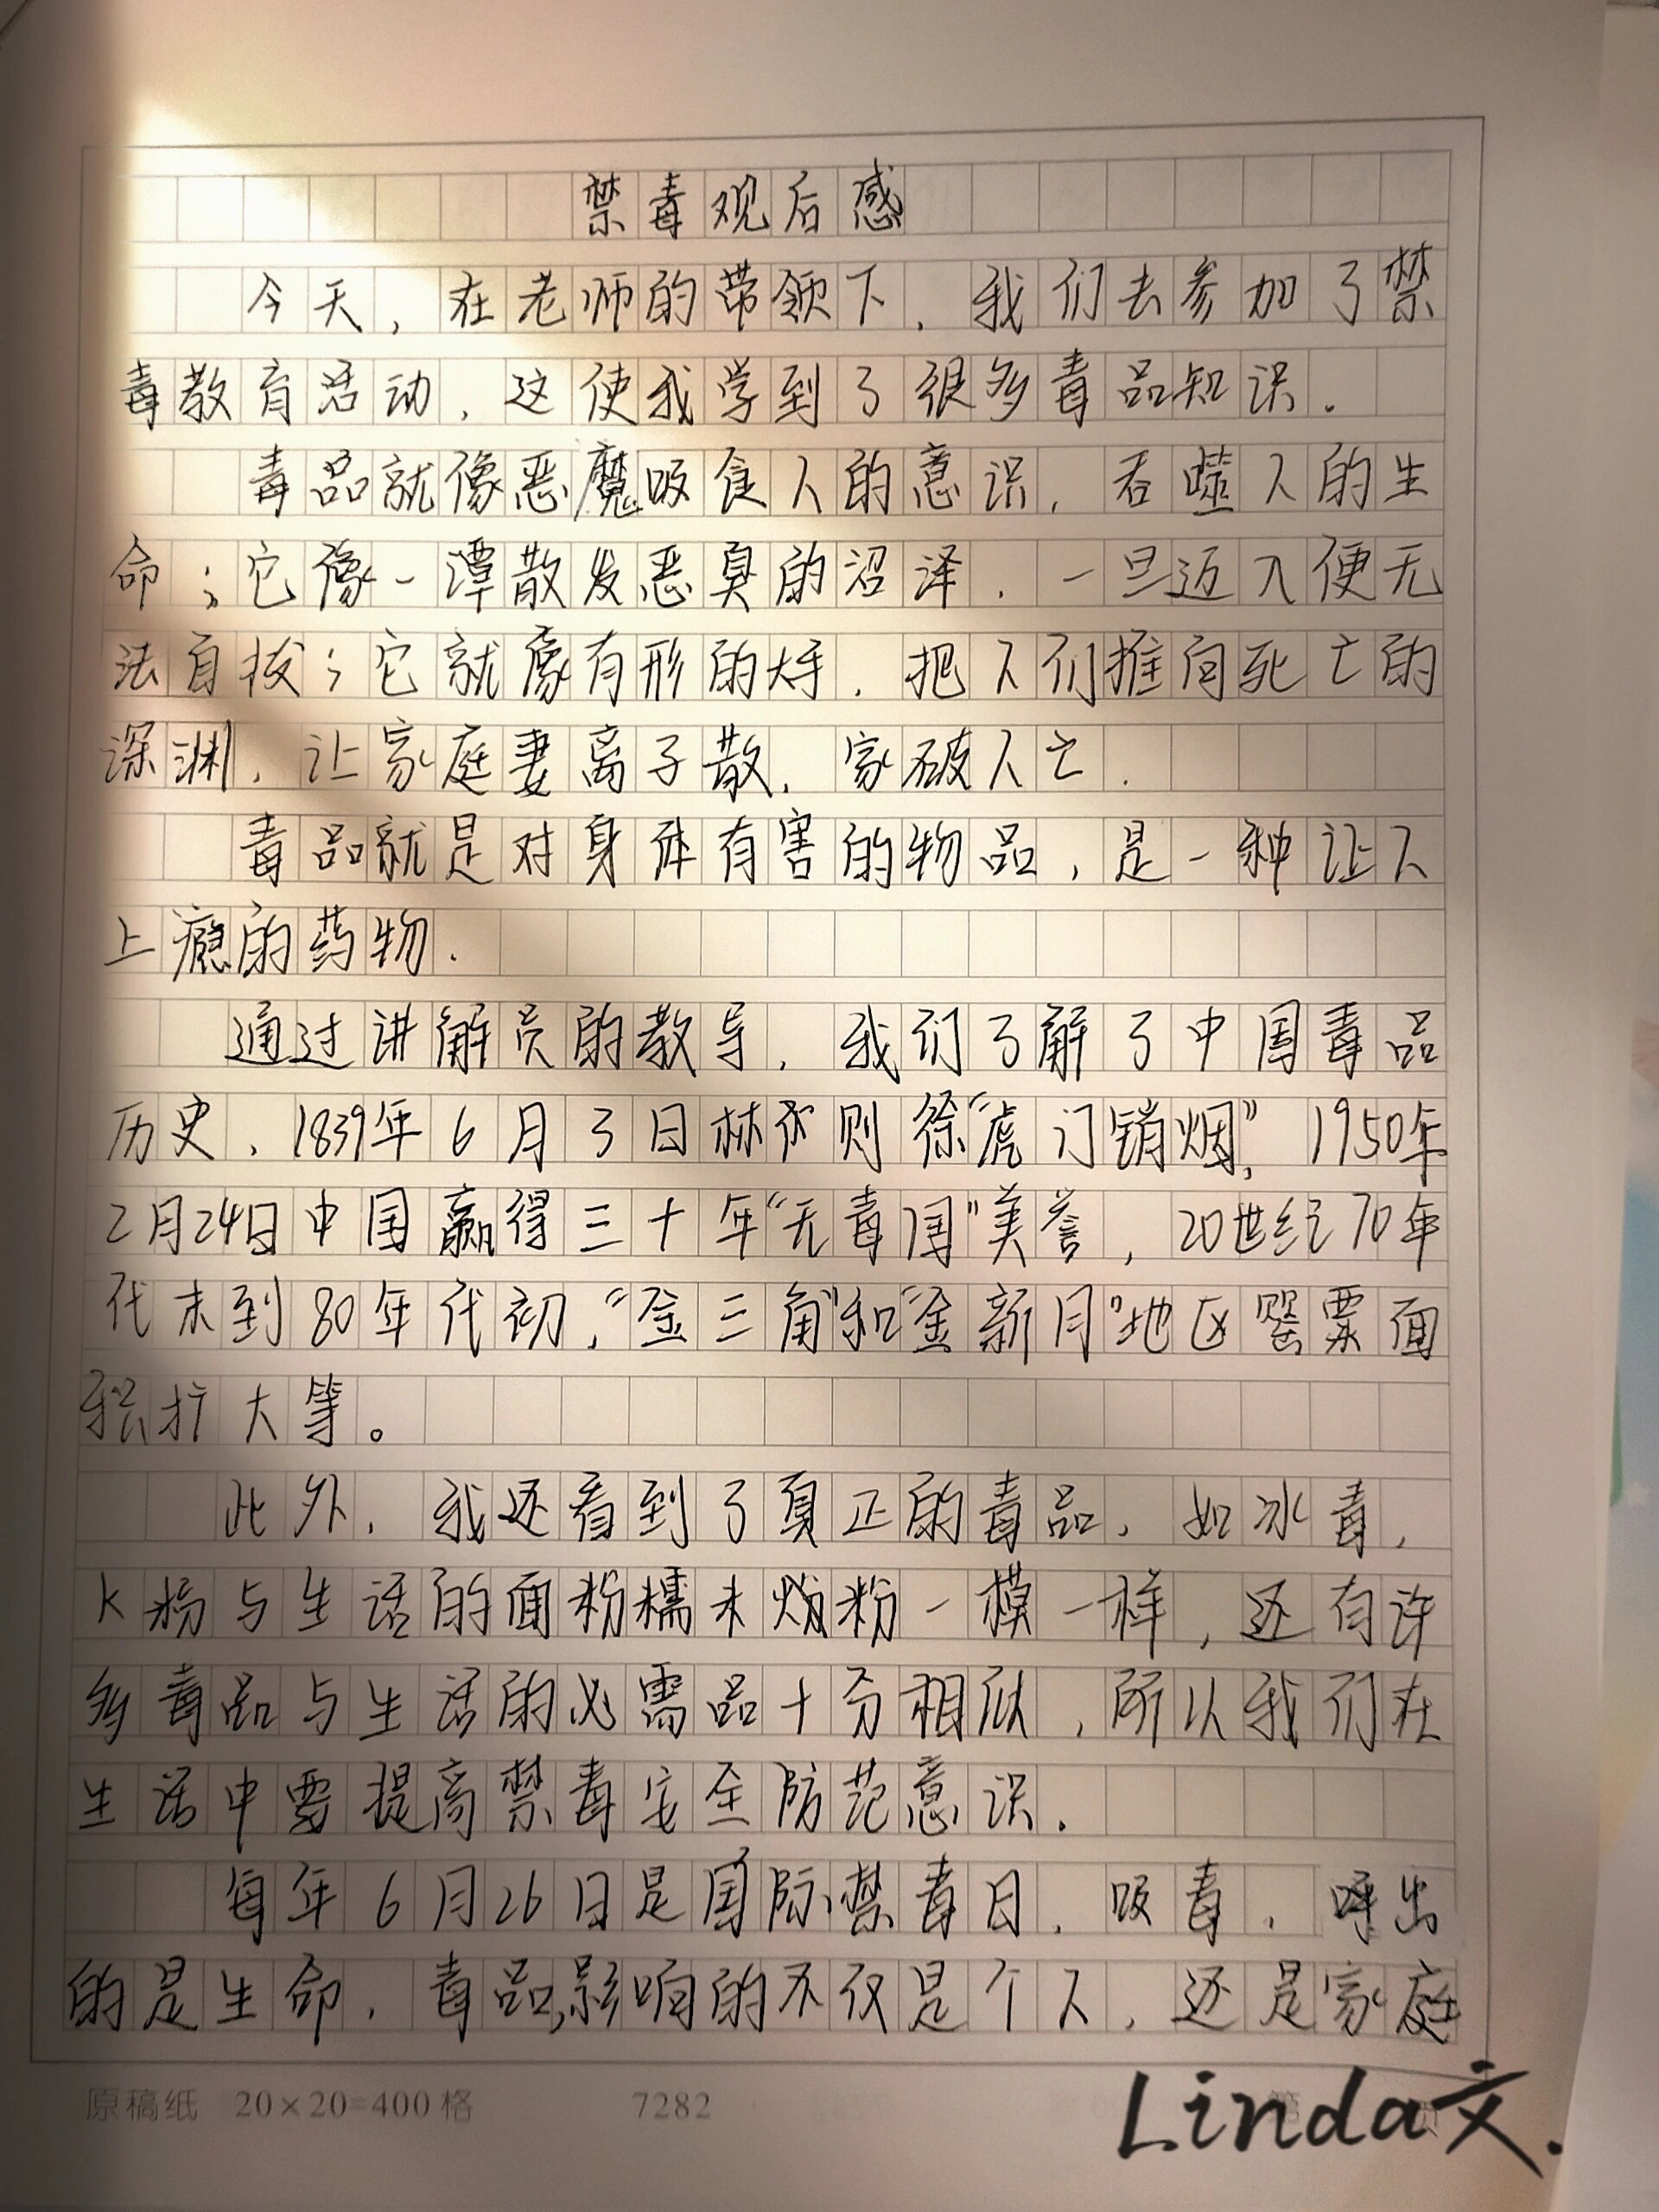 禁毒观后感
今天，在老师的带领下，我们去参加了禁
毒教育活动，这使我学到了很多毒品知识.
毒品就像恶魔吸食人的意识，吞噬人的生
命；它像一潭散发恶臭的沼泽，一旦迈入便无
法自拔；它就像有形的大手，把人们推向死亡的
深渊，让家庭妻离子散，家破人亡.
毒品就是对身体有害的物品，是一种让人
上瘾的药物.
通过讲解员的教导，我们了解了中国毒品
历史，1839年6月3日林则徐“虎门销烟”，1950年
2月24日中国赢得三十年“无毒国”美誉，20世纪70年
代末到80年代初，“金三角”和“金新月”地区罂粟面
积扩大等。
此外，我还看到了真正的毒品，如冰毒，
K粉与生活的面粉糯米粉一模一样，还有许
多毒品与生活的必需品十分相似，所以我们在
生活中要提高禁毒安全防范意识.
每年6月26日是国际禁毒日，吸毒，呼出
的是生命，毒品影响的不仅是个人，还是家庭
原稿纸 20×20=400格 7282
Linda文.